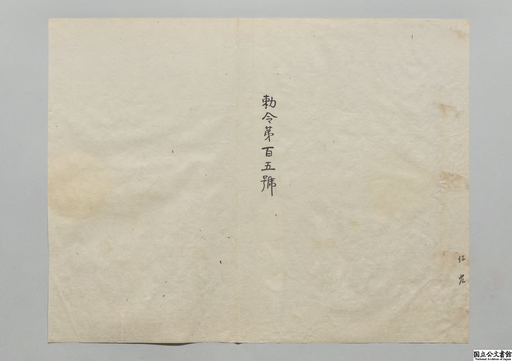 勅令第百五號
国立公文書館
National Archives of Japan